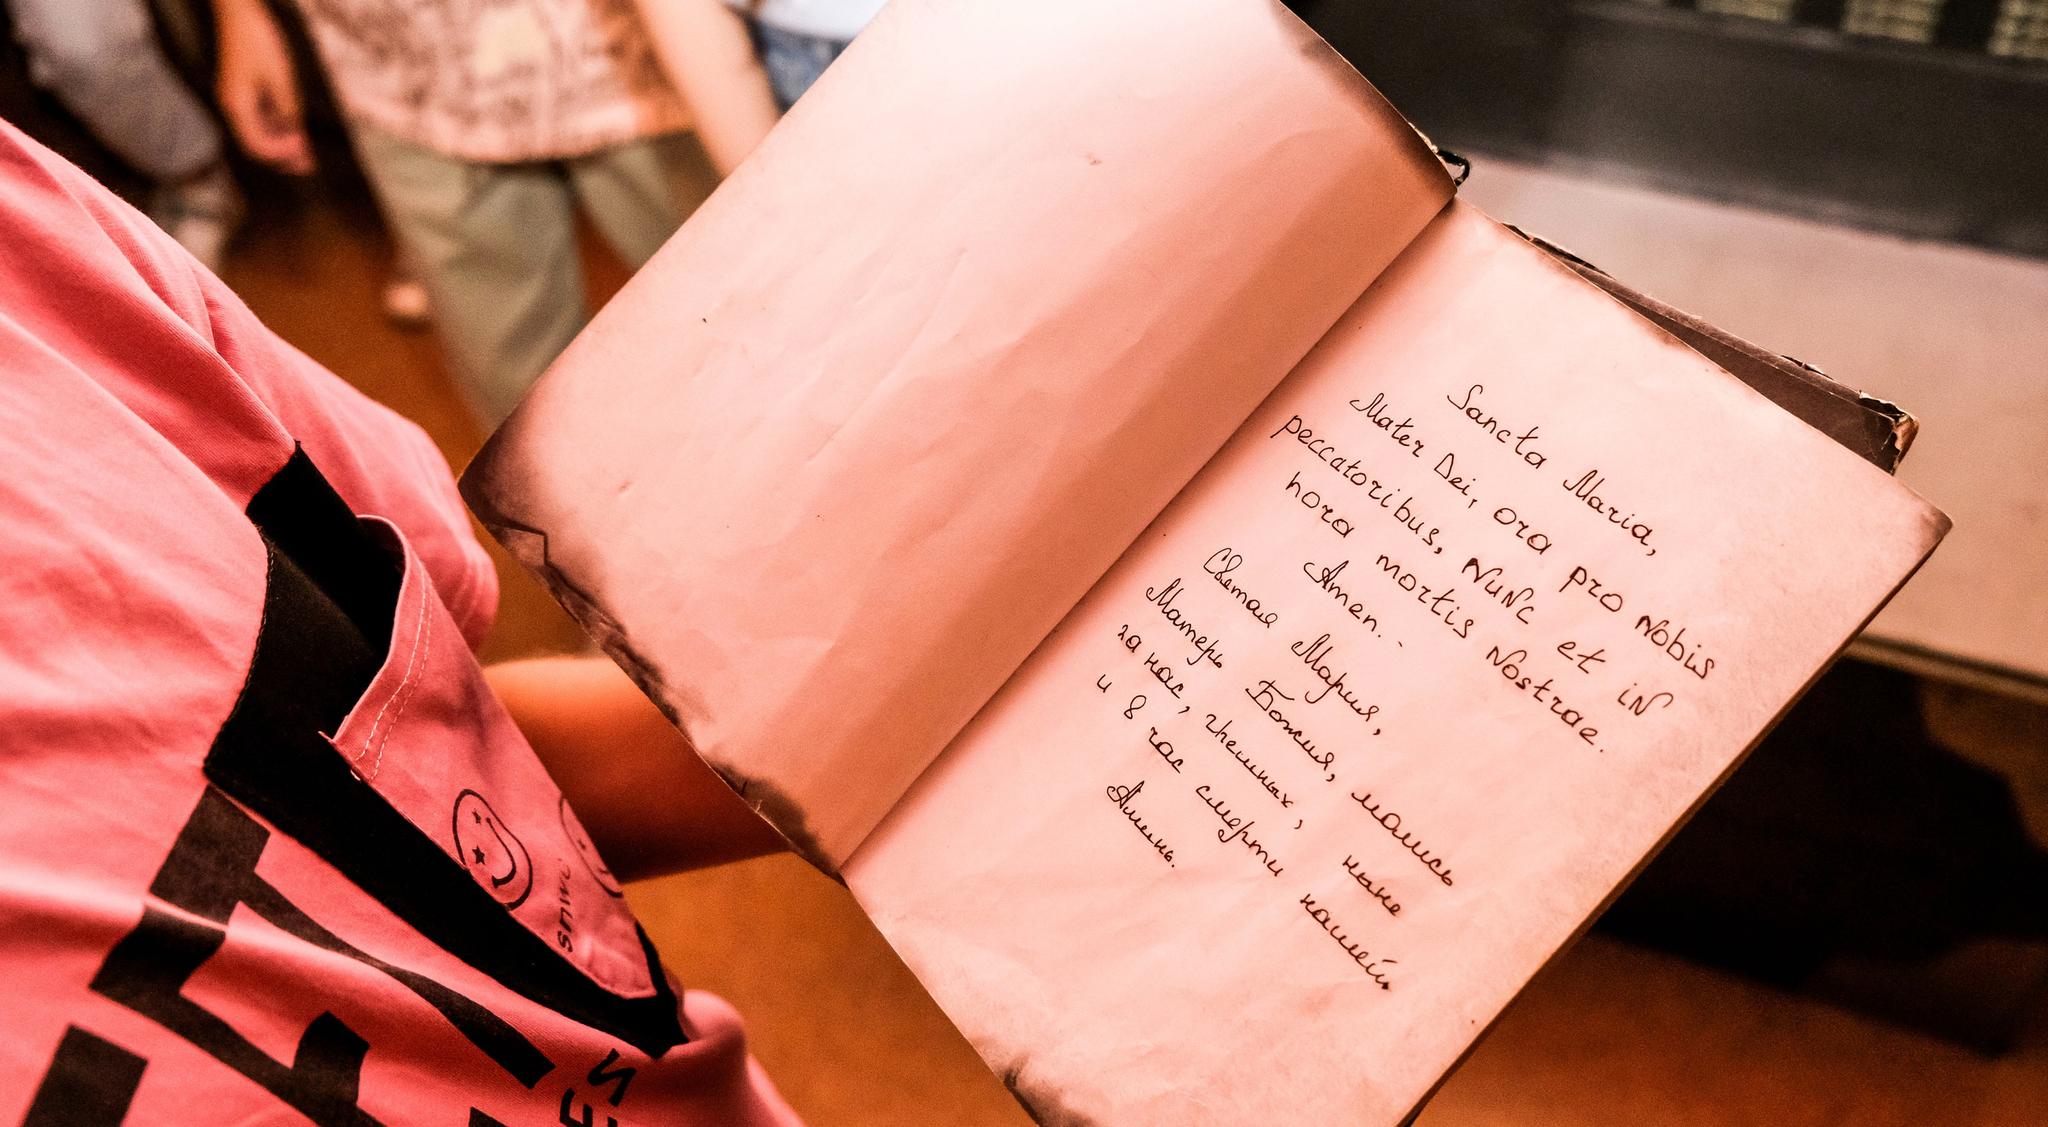 Sancta Maria,
Mater Dei, ora pro nobis
peccatoribus, nunc et in
hora mortis nostrae.
Amen. -
Святая Мария,
Матерь Божия, молись
за нас, грешных, ныне
и в час смерти нашей.
Аминь.